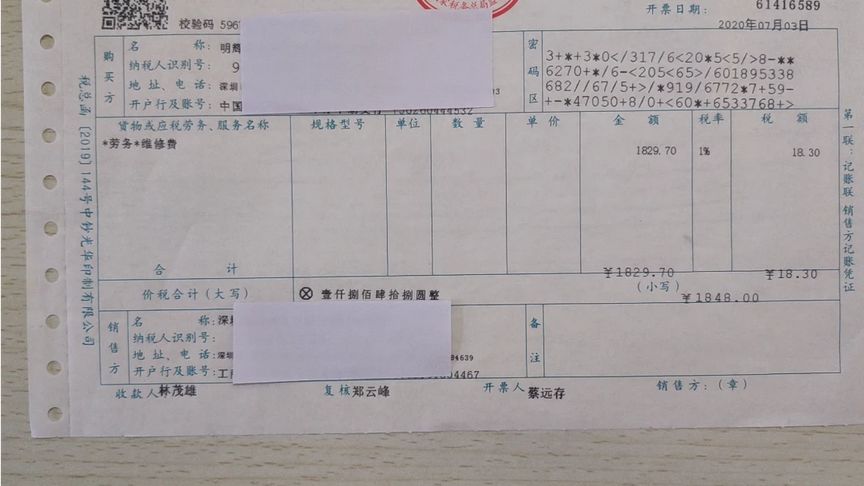 61416589
校验码 596
开票日期:
2020年07月03日
购买方
名称: 明辉
纳税人识别号: 9
地址、电话: 深圳
开户行及账号: 中国
密码区
3+*+3*0</317/6<20*5<5/>8-**
6270+*/6-<205<65>/601895338
682//67/5+>/*919/6772*7+59-
+-*47050+8/0+<60*+6533768+>
货物或应税劳务、服务名称 规格型号 单位 数量 单价 金额 税率 税额
*劳务*维修费 1829.70 1% 18.30
合计 ¥1829.70 ¥18.30
价税合计(大写) ⊗ 壹仟捌佰肆拾捌圆整 (小写) ¥1848.00
销售方
名称: 深圳
纳税人识别号:
地址、电话: 深圳 84639
开户行及账号: 工 4467
备注
收款人 林茂雄 复核 郑云峰 开票人 蔡远存 销售方:(章)
税总函〔2019〕144号中钞光华印制有限公司
第一联:记账联 销售方记账凭证